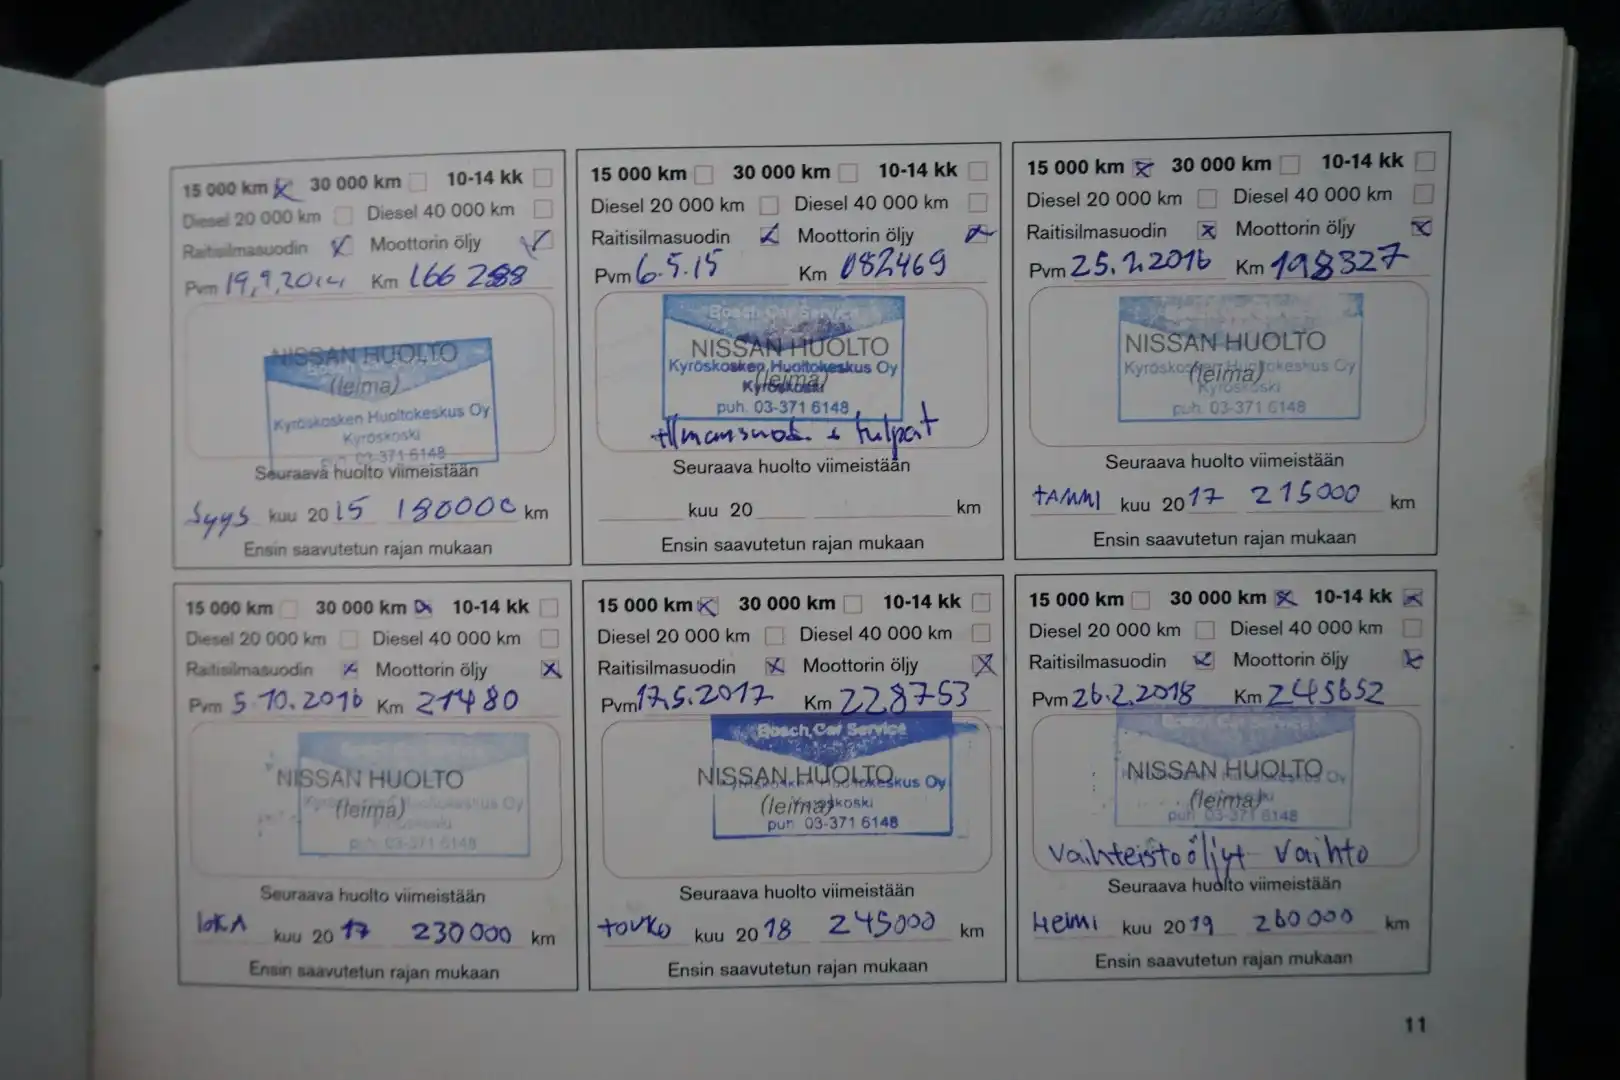 15 000 km 30 000 km 10-14 kk
Diesel 20 000 km Diesel 40 000 km
Raitisilmasuodin Moottorin öljy
Pvm 19.9.2014 Km 166 288
NISSAN HUOLTO
(leima)
Kyröskosken Huoltokeskus Oy
Kyröskoski
puh. 03-371 6148
Seuraava huolto viimeistään
Syys kuu 2015 180000 km
Ensin saavutetun rajan mukaan
15 000 km 30 000 km 10-14 kk
Diesel 20 000 km Diesel 40 000 km
Raitisilmasuodin Moottorin öljy
Pvm 6.5.15 Km 082469
Bosch Car Service
NISSAN HUOLTO
Kyröskosken Huoltokeskus Oy
(leima)
Kyröskoski
puh. 03-371 6148
Ilmansuod. + tulpat
Seuraava huolto viimeistään
kuu 20 km
Ensin saavutetun rajan mukaan
15 000 km 30 000 km 10-14 kk
Diesel 20 000 km Diesel 40 000 km
Raitisilmasuodin Moottorin öljy
Pvm 25.1.2016 Km 198327
NISSAN HUOLTO
Kyröskosken Huoltokeskus Oy
(leima)
Kyröskoski
puh. 03-371 6148
Seuraava huolto viimeistään
TAMMI kuu 2017 215000 km
Ensin saavutetun rajan mukaan
15 000 km 30 000 km 10-14 kk
Diesel 20 000 km Diesel 40 000 km
Raitisilmasuodin Moottorin öljy
Pvm 5.10.2016 Km 21480
NISSAN HUOLTO
Kyröskosken Huoltokeskus Oy
(leima)
Kyröskoski
puh. 03-371 6148
Seuraava huolto viimeistään
lokA kuu 2017 230000 km
Ensin saavutetun rajan mukaan
15 000 km 30 000 km 10-14 kk
Diesel 20 000 km Diesel 40 000 km
Raitisilmasuodin Moottorin öljy
Pvm 17.5.2017 Km 228753
Bosch Car Service
NISSAN HUOLTO
Kyröskosken Huoltokeskus Oy
(leima)
Kyröskoski
puh 03-371 6148
Seuraava huolto viimeistään
touko kuu 2018 245000 km
Ensin saavutetun rajan mukaan
15 000 km 30 000 km 10-14 kk
Diesel 20 000 km Diesel 40 000 km
Raitisilmasuodin Moottorin öljy
Pvm 26.2.2018 Km 245652
Bosch Car Service
NISSAN HUOLTO
(leima)
puh. 03-371 6148
Vaihteistoöljyt vaihto
Seuraava huolto viimeistään
Helmi kuu 2019 260000 km
Ensin saavutetun rajan mukaan
11